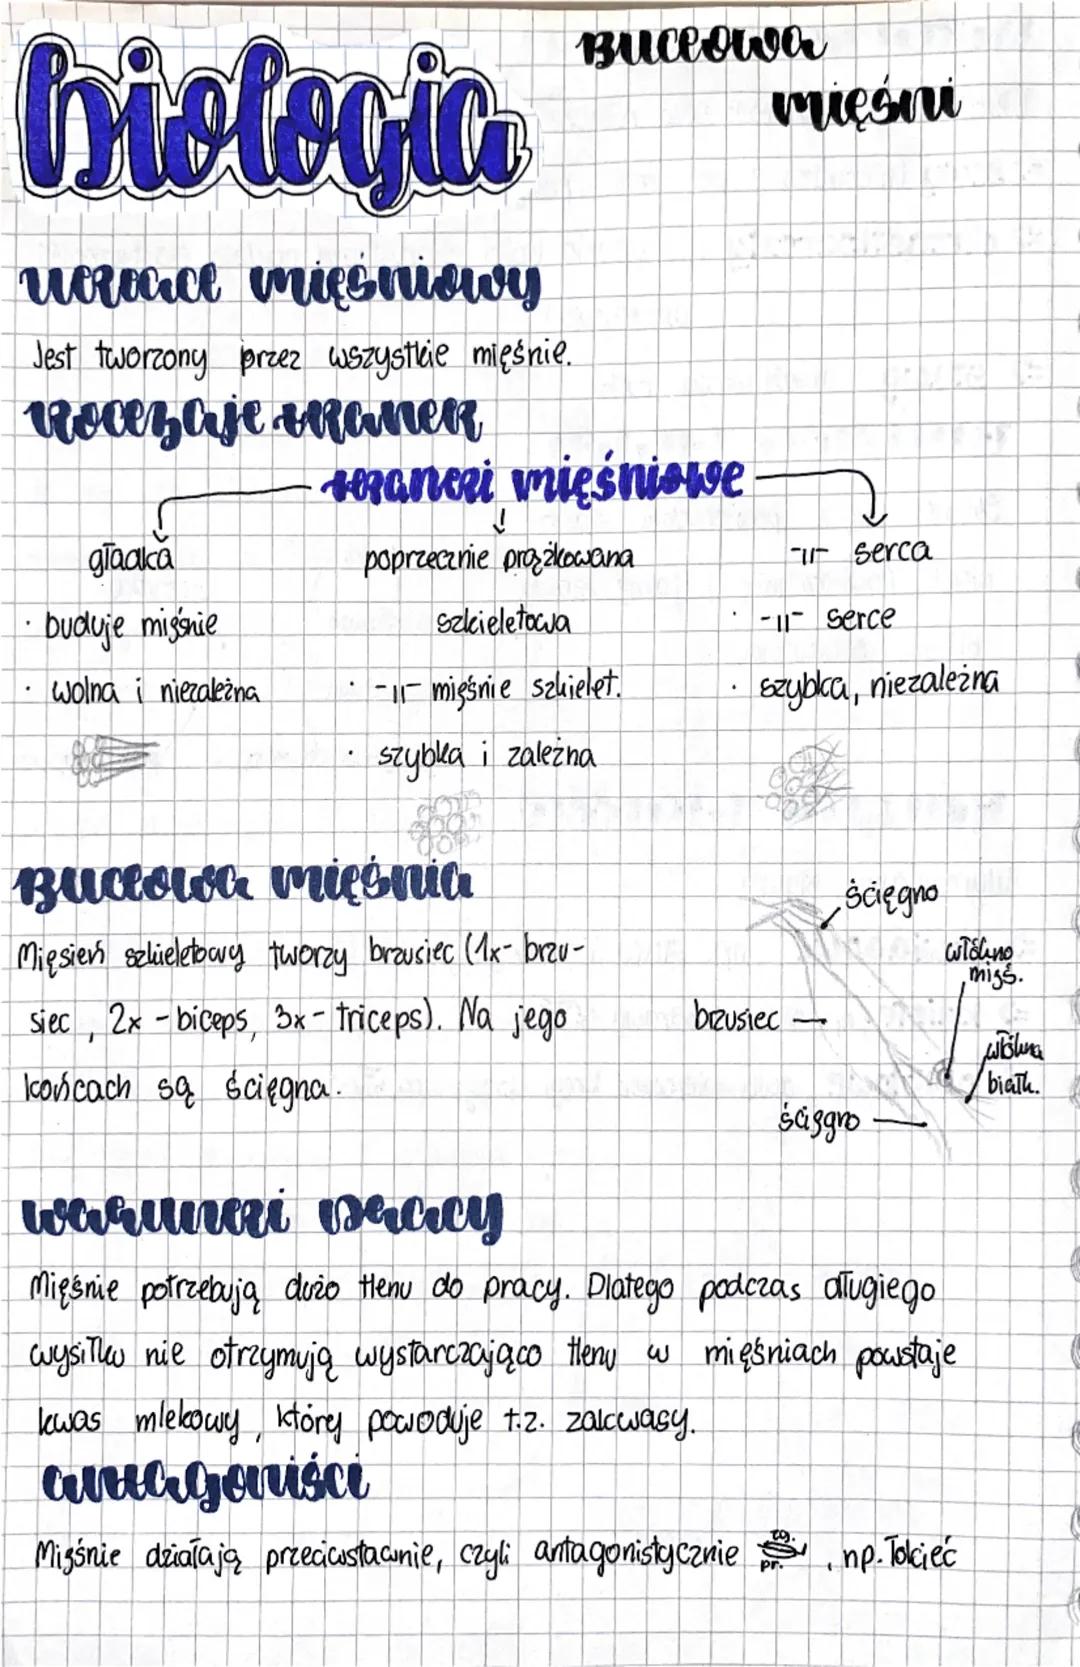 biologia
Budowa
mięśni
układ mięśniowy
Jest tworzony przez wszystkie mięśnie.
rodzaje tkanek
tkanki mięśniowe
gładka
poprzecznie prążkowana
-11- serca
· buduje mięśnie
szkieletowa
· -11- serce
· wolna i niezależna
· -11- mięśnie szkielet.
· szybka, niezależna
· szybka i zależna
Budowa mięśnia
ścięgno
Mięsień szkieletowy tworzy brzusiec (1x- brzu-
włókno
mięś.
siec, 2x - biceps, 3x - triceps). Na jego
brzusiec
włókna
białk.
końcach są ścięgna.
ścięgno
warunki pracy
Mięśnie potrzebują dużo tlenu do pracy. Dlatego podczas długiego
wysiłku nie otrzymują wystarczająco tlenu w mięśniach powstaje
kwas mlekowy, który powoduje t.z. zakwasy.
antagoniści
Mięśnie działają przeciwstawnie, czyli antagonistycznie zg. pr. , np. łokieć